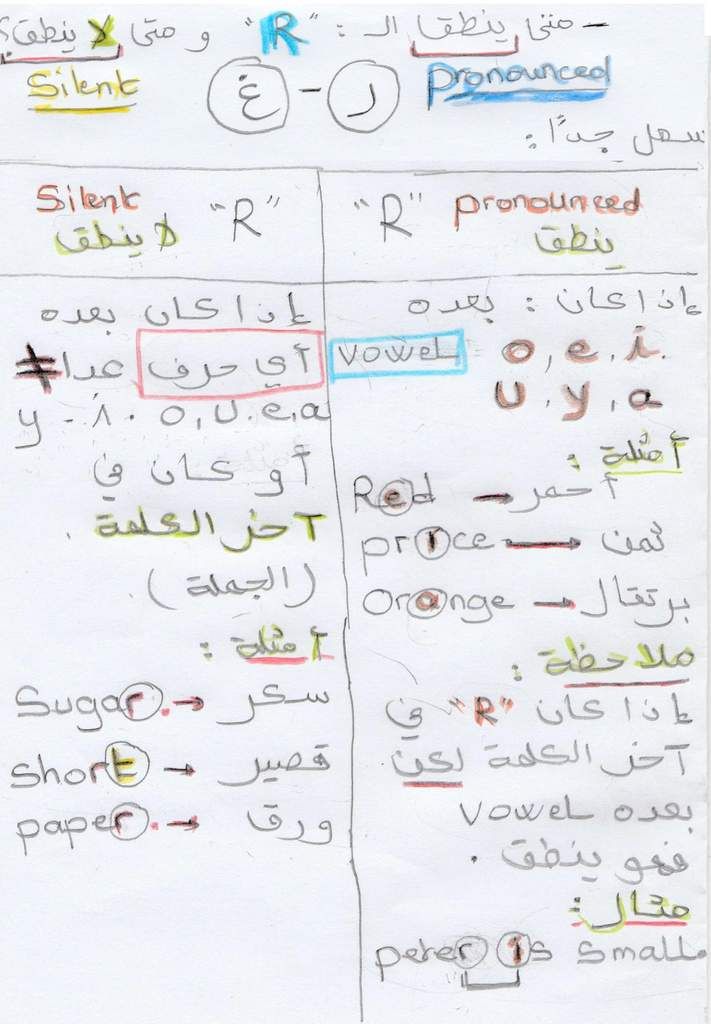 - متى ينطق الـ : "R" و متى لا ينطق؟
pronounced ر - غ Silent
سهل جدًا :
"R" pronounced
ينطق
إذا كان : بعده
Vowel o, e, i.
U, y, a
أمثلة :
Red → أحمر
price → ثمن
Orange → برتقال
ملاحظة :
إذا كان "R" في
آخر الكلمة لكن
بعده Vowel
فهو ينطق .
مثال :
peter is small.
Silent "R"
لا ينطق
إذا كان بعده
أي حرف عدا ≠
y - i . o, U. e, a
أو كان في
آخر الكلمة .
(الجملة) .
أمثلة :
Sugar. → سكر
Short → قصير
paper. → ورق